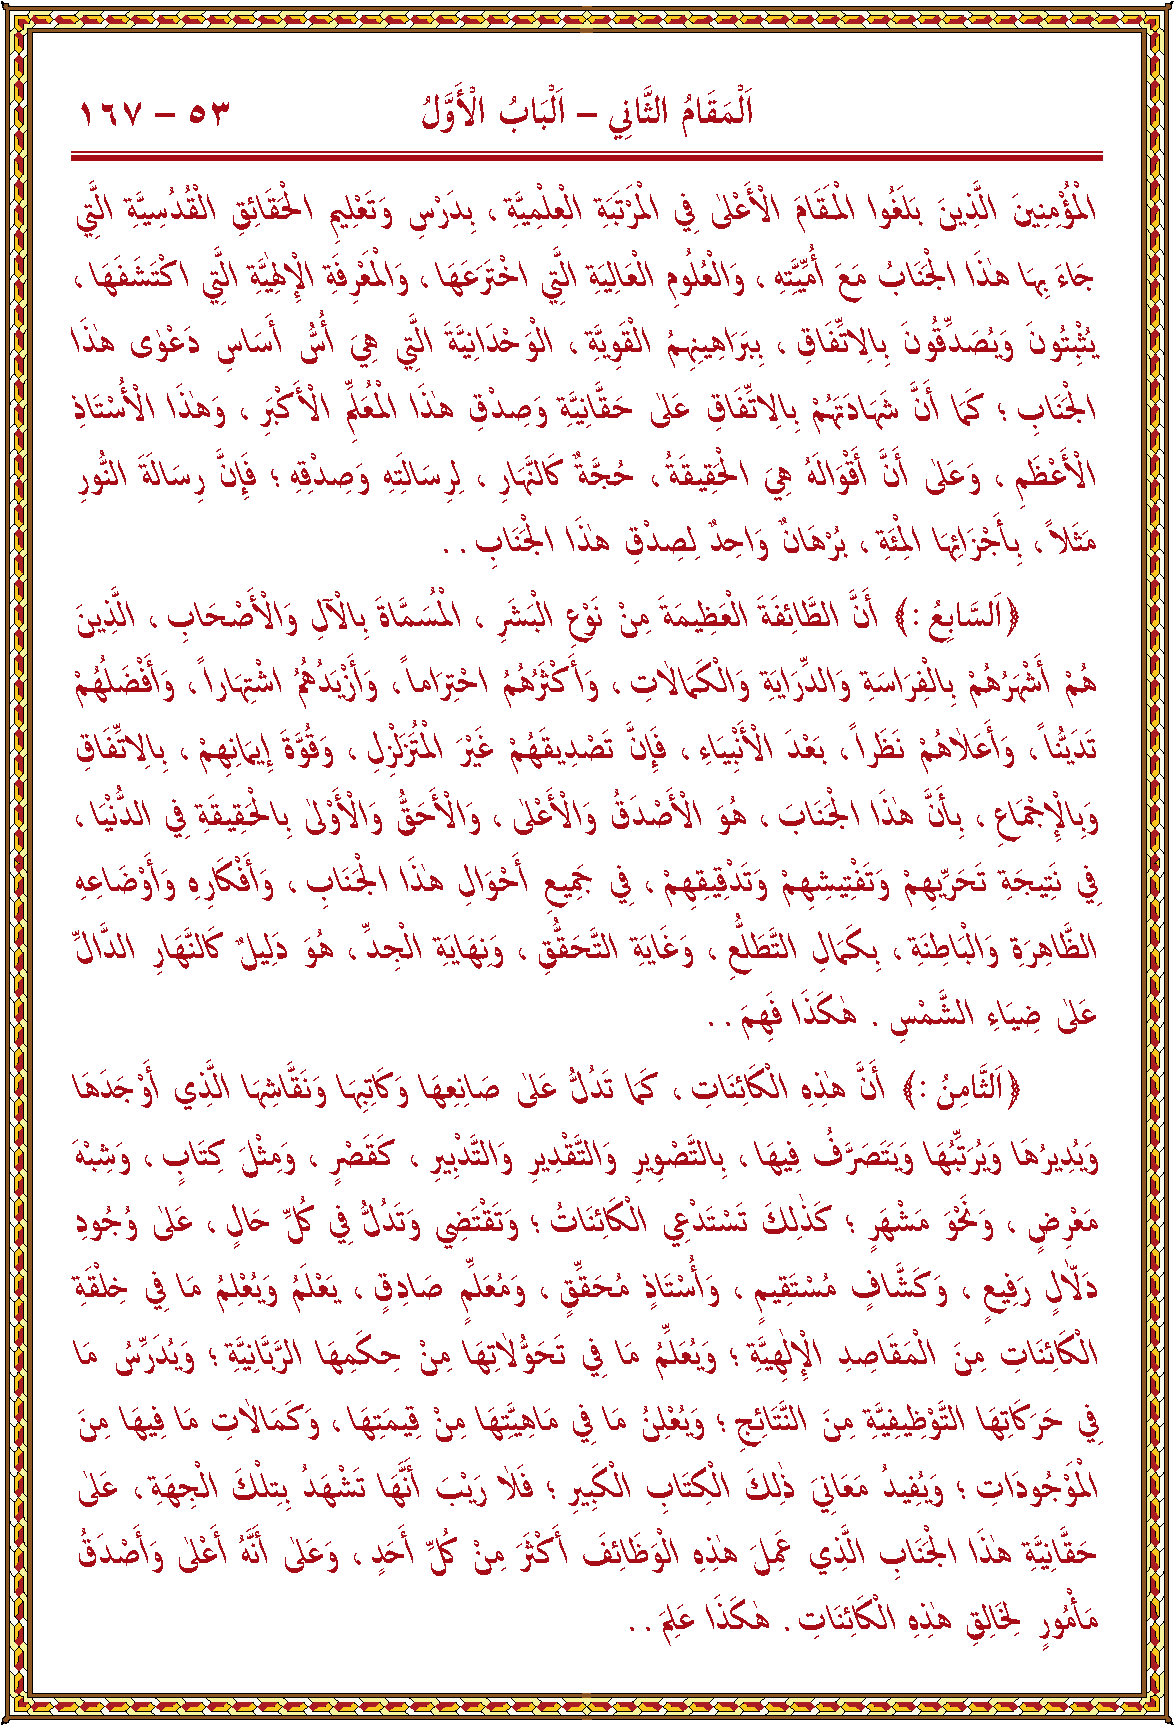 اَلْمَقَامُ الثَّانِي – اَلْبَابُ الْأَوَّلُ ٥٣ – ١٦٧
الْمُؤْمِنِينَ الَّذِينَ بَلَغُوا الْمَقَامَ الْأَعْلٰى فِي الْمَرْتَبَةِ الْعِلْمِيَّةِ ، بِدَرْسِ وَتَعْلِيمِ الْحَقَائِقِ الْقُدْسِيَّةِ الَّتِي
جَاءَ بِهَا هٰذَا الْجَنَابُ مَعَ أُمِّيَّتِهِ ، وَالْعُلُومِ الْعَالِيَةِ الَّتِي اخْتَرَعَهَا ، وَالْمَعْرِفَةِ الْإِلٰهِيَّةِ الَّتِي اكْتَشَفَهَا ،
يُثْبِتُونَ وَيُصَدِّقُونَ بِالِاتِّفَاقِ ، بِبَرَاهِينِهِمُ الْقَوِيَّةِ ، الْوَحْدَانِيَّةَ الَّتِي هِيَ أُسُّ أَسَاسِ دَعْوٰى هٰذَا
الْجَنَابِ ؛ كَمَا أَنَّ شَهَادَتَهُمْ بِالِاتِّفَاقِ عَلٰى حَقَّانِيَّةِ وَصِدْقِ هٰذَا الْمُعَلِّمِ الْأَكْبَرِ ، وَهٰذَا الْأُسْتَاذِ
الْأَعْظَمِ ، وَعَلٰى أَنَّ أَقْوَالَهُ هِيَ الْحَقِيقَةُ ، حُجَّةٌ كَالنَّهَارِ ، لِرِسَالَتِهِ وَصِدْقِهِ ؛ فَإِنَّ رِسَالَةَ النُّورِ
مَثَلاً ، بِأَجْزَائِهَا الْمِئَةِ ، بُرْهَانٌ وَاحِدٌ لِصِدْقِ هٰذَا الْجَنَابِ . .
﴿اَلسَّابِعُ :﴾ أَنَّ الطَّائِفَةَ الْعَظِيمَةَ مِنْ نَوْعِ الْبَشَرِ ، الْمُسَمَّاةَ بِالْآلِ وَالْأَصْحَابِ ، الَّذِينَ
هُمْ أَشْهَرُهُمْ بِالْفِرَاسَةِ وَالدِّرَايَةِ وَالْكَمَالَاتِ ، وَأَكْثَرُهُمُ احْتِرَاماً ، وَأَزْيَدُهُمُ اشْتِهَاراً ، وَأَفْضَلُهُمْ
تَدَيُّناً ، وَأَعْلَاهُمْ نَظَراً ، بَعْدَ الْأَنْبِيَاءِ ، فَإِنَّ تَصْدِيقَهُمْ غَيْرَ الْمُتَزَلْزِلِ ، وَقُوَّةَ إِيمَانِهِمْ ، بِالِاتِّفَاقِ
وَبِالْإِجْمَاعِ ، بِأَنَّ هٰذَا الْجَنَابَ ، هُوَ الْأَصْدَقُ وَالْأَعْلٰى ، وَالْأَحَقُّ وَالْأَوْلٰى بِالْحَقِيقَةِ فِي الدُّنْيَا ،
فِي نَتِيجَةِ تَحَرِّيهِمْ وَتَفْتِيشِهِمْ وَتَدْقِيقِهِمْ ، فِي جَمِيعِ أَحْوَالِ هٰذَا الْجَنَابِ ، وَأَفْكَارِهِ وَأَوْضَاعِهِ
الظَّاهِرَةِ وَالْبَاطِنَةِ ، بِكَمَالِ التَّطَلُّعِ ، وَغَايَةِ التَّحَقُّقِ ، وَنِهَايَةِ الْجِدِّ ، هُوَ دَلِيلٌ كَالنَّهَارِ الدَّالِّ
عَلٰى ضِيَاءِ الشَّمْسِ . هٰكَذَا فَهِمَ . .
﴿اَلثَّامِنُ :﴾ أَنَّ هٰذِهِ الْكَائِنَاتِ ، كَمَا تَدُلُّ عَلٰى صَانِعِهَا وَكَاتِبِهَا وَنَقَّاشِهَا الَّذِي أَوْجَدَهَا
وَيُدِيرُهَا وَيُرَتِّبُهَا وَيَتَصَرَّفُ فِيهَا ، بِالتَّصْوِيرِ وَالتَّقْدِيرِ وَالتَّدْبِيرِ ، كَقَصْرٍ ، وَمِثْلَ كِتَابٍ ، وَشِبْهَ
مَعْرِضٍ ، وَنَحْوَ مَشْهَرٍ ؛ كَذٰلِكَ تَسْتَدْعِي الْكَائِنَاتُ ؛ وَتَقْتَضِي وَتَدُلُّ فِي كُلِّ حَالٍ ، عَلٰى وُجُودِ
دَلَّالٍ رَفِيعٍ ، وَكَشَّافٍ مُسْتَقِيمٍ ، وَأُسْتَاذٍ مُحَقِّقٍ ، وَمُعَلِّمٍ صَادِقٍ ، يَعْلَمُ وَيُعْلِمُ مَا فِي خِلْقَةِ
الْكَائِنَاتِ مِنَ الْمَقَاصِدِ الْإِلٰهِيَّةِ ؛ وَيُعَلِّمُ مَا فِي تَحَوُّلَاتِهَا مِنْ حِكَمِهَا الرَّبَّانِيَّةِ ؛ وَيُدَرِّسُ مَا
فِي حَرَكَاتِهَا التَّوْظِيفِيَّةِ مِنَ النَّتَائِجِ ؛ وَيُعْلِنُ مَا فِي مَاهِيَّتِهَا مِنْ قِيمَتِهَا ، وَكَمَالَاتِ مَا فِيهَا مِنَ
الْمَوْجُودَاتِ ؛ وَيُفِيدُ مَعَانِيَ ذٰلِكَ الْكِتَابِ الْكَبِيرِ ؛ فَلَا رَيْبَ أَنَّهَا تَشْهَدُ بِتِلْكَ الْجِهَةِ ، عَلٰى
حَقَّانِيَّةِ هٰذَا الْجَنَابِ الَّذِي عَمِلَ هٰذِهِ الْوَظَائِفَ أَكْثَرَ مِنْ كُلِّ أَحَدٍ ، وَعَلٰى أَنَّهُ أَعْلٰى وَأَصْدَقُ
مَأْمُورٍ لِخَالِقِ هٰذِهِ الْكَائِنَاتِ . هٰكَذَا عَلِمَ . .